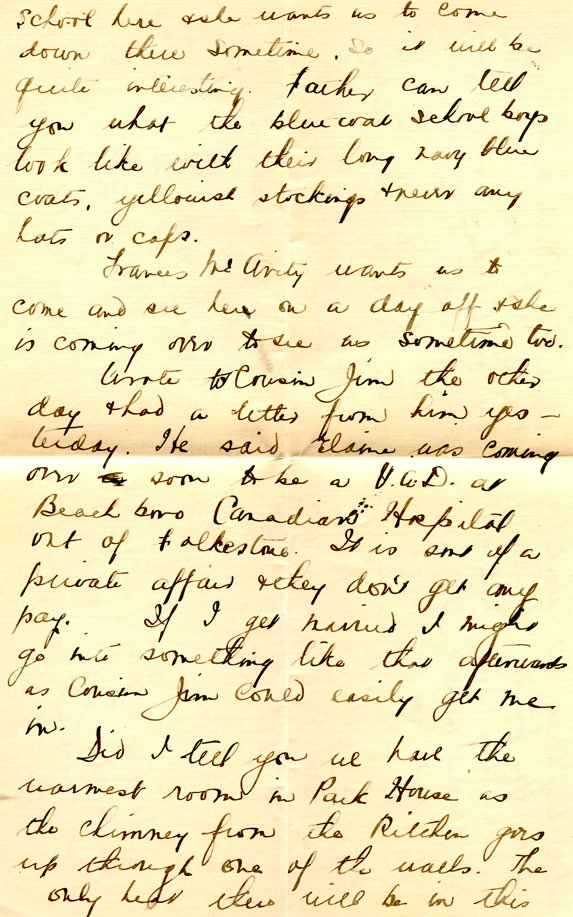 school here & she wants us to come
down there sometime. So it will be
quite interesting. Father can tell
you what the bluecoat school boys
look like with their long navy blue
coats, yellowish stockings & never any
hats or caps.
Frances McAvity wants us to
come and see her on a day off & she
is coming over to see us sometime too.
Wrote to Cousin Jim the other
day & had a letter from him yes-
terday. He said Elaine was coming
over soon to be a V.A.D. at
Beachboro Canadian Hospital
out of Folkestone. It is sort of a
private affair & they don't get any
pay. If I get married I might
go into something like that afterwards
as Cousin Jim could easily get me
in.
Did I tell you we have the
warmest room in Park House as
the chimney from the Kitchen goes
up through one of the walls. The
only heat there will be in this